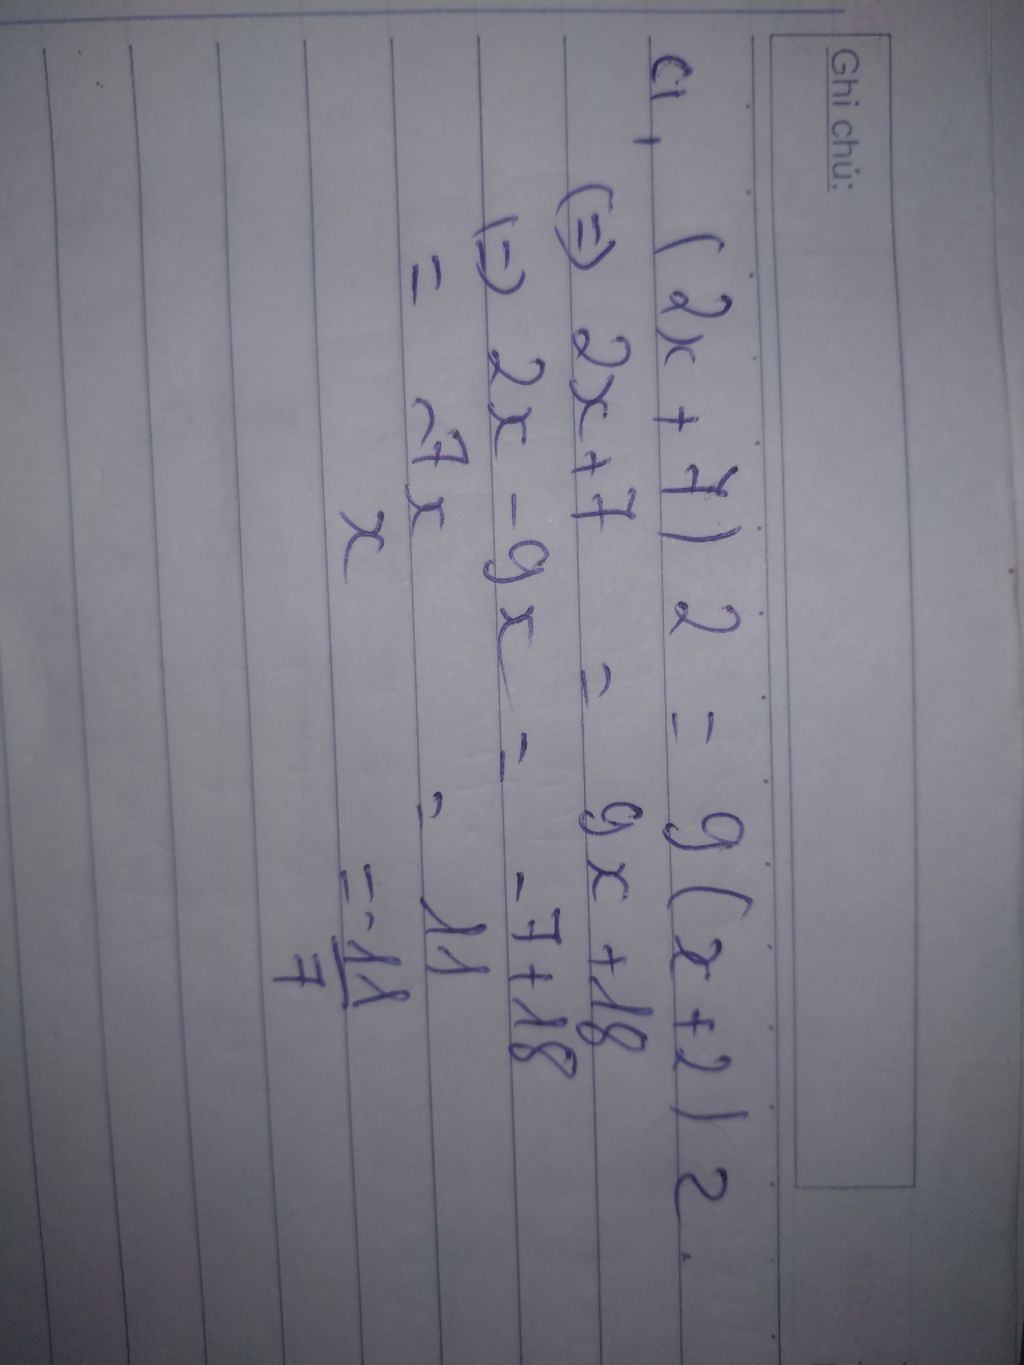 Ghi chú:
a, (2x+7)2 = 9(x+2)2.
(=) 2x+7 = 9x+18
(=) 2x-9x = -7+18
= -7x = 11
x = -11/7